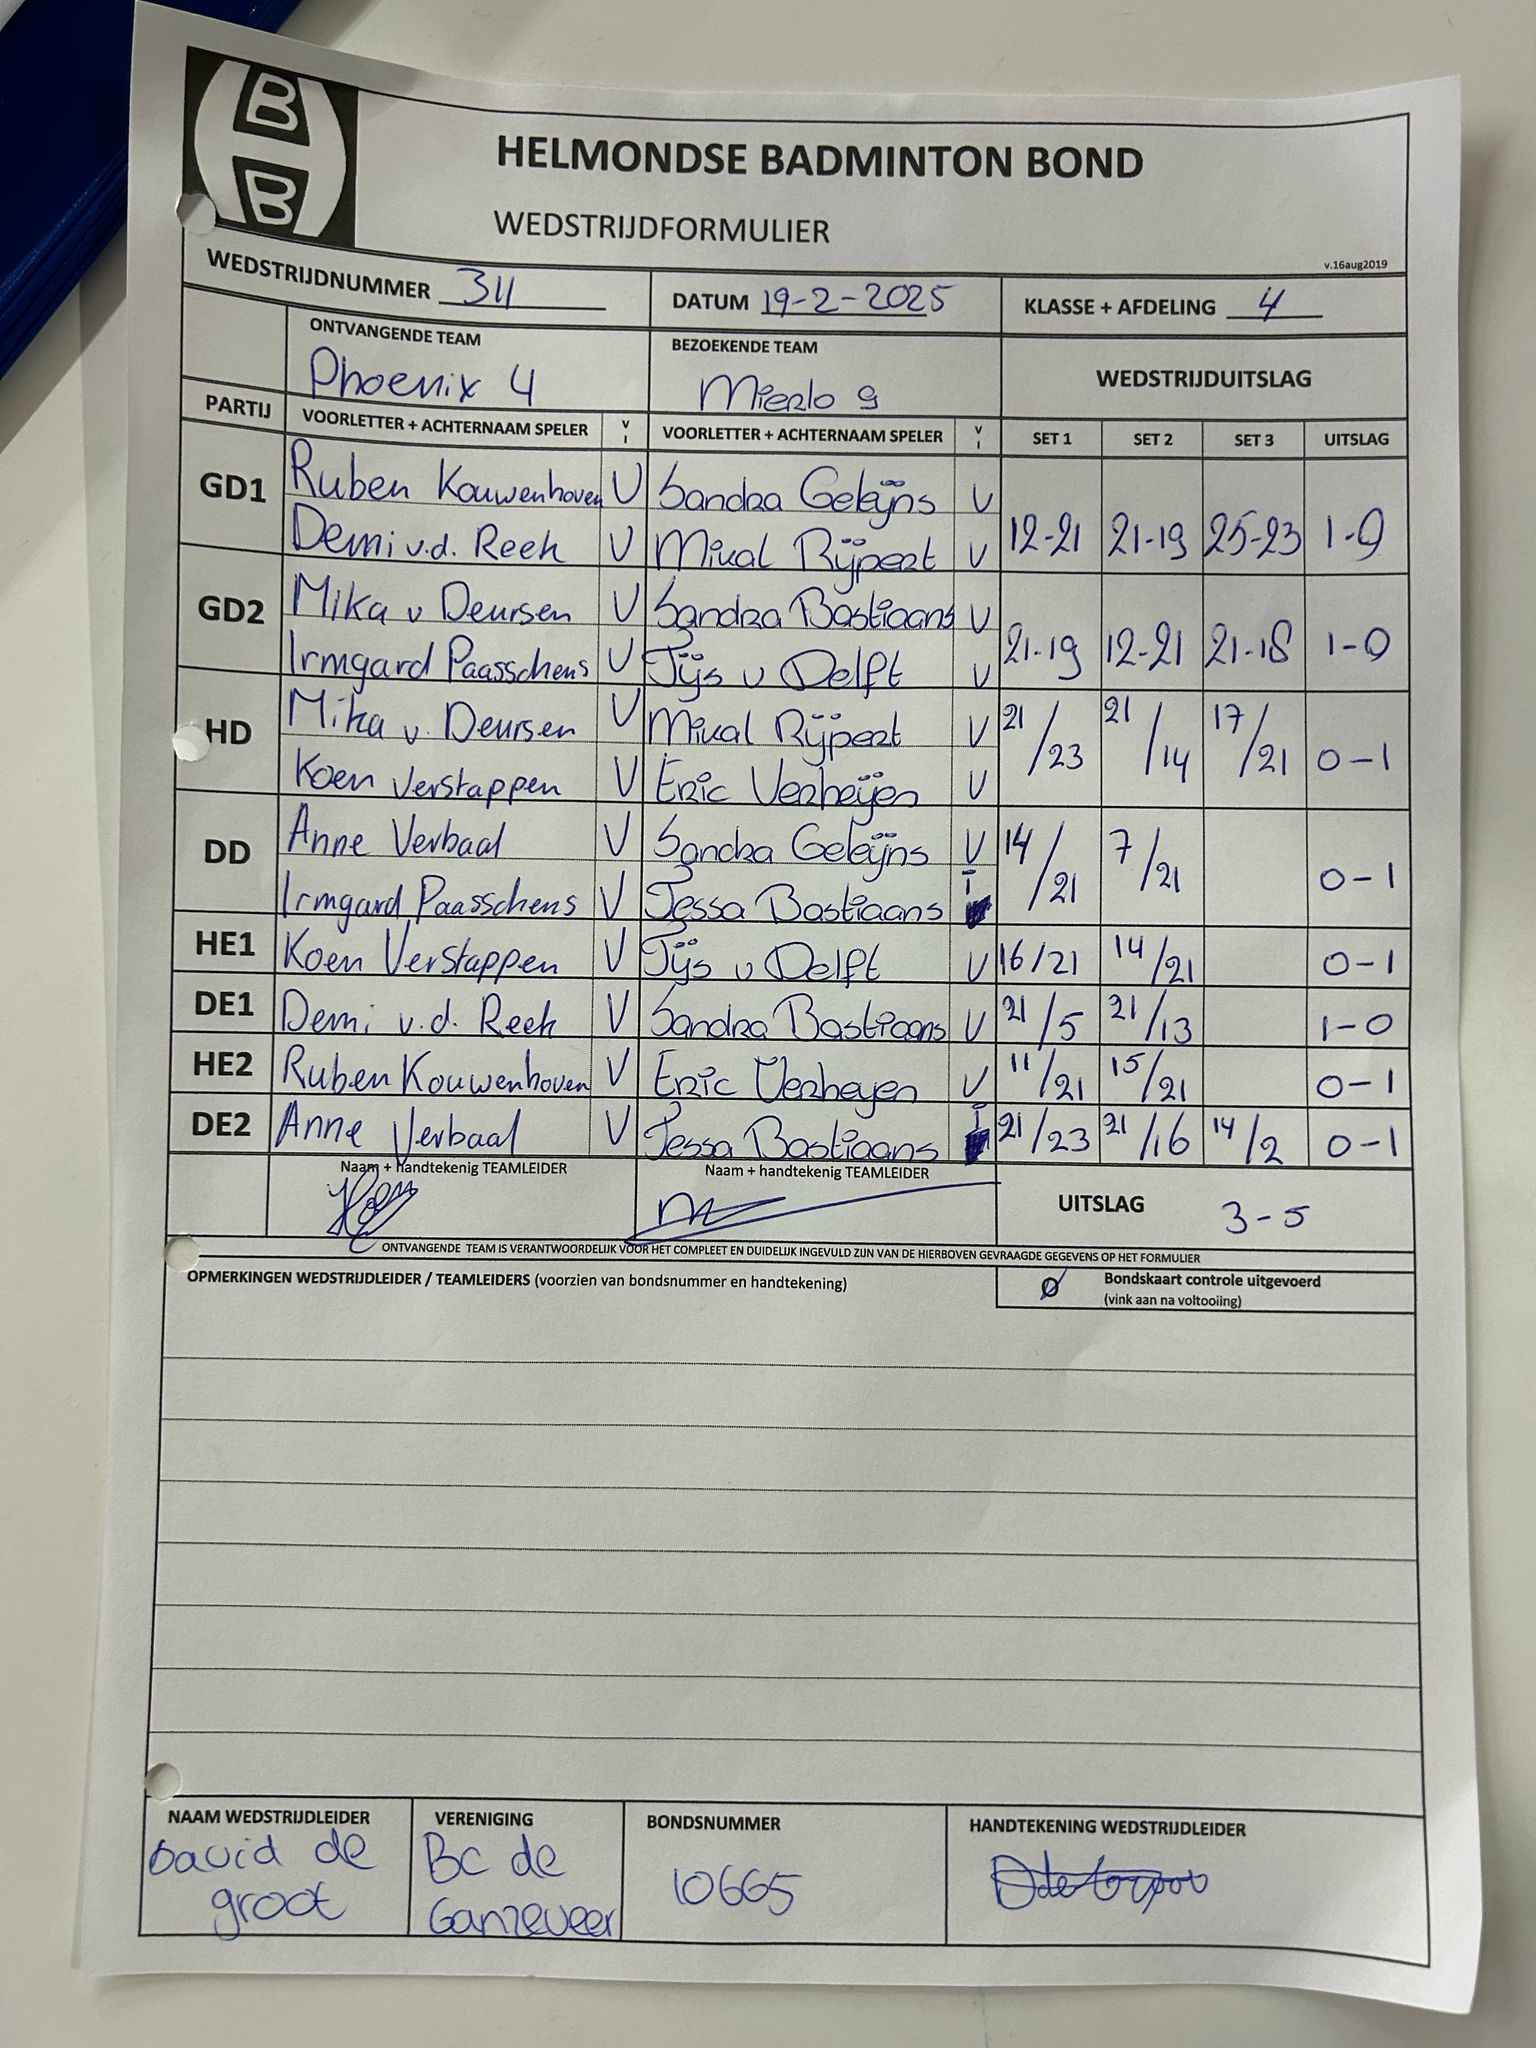 B
B
HELMONDSE BADMINTON BOND
WEDSTRIJDFORMULIER
v.16aug2019
WEDSTRIJDNUMMER 311 DATUM 19-2-2025 KLASSE + AFDELING 4
ONTVANGENDE TEAM BEZOEKENDE TEAM
Phoenix 4 Mierlo 9 WEDSTRIJDUITSLAG
PARTIJ VOORLETTER + ACHTERNAAM SPELER V I VOORLETTER + ACHTERNAAM SPELER V I SET 1 SET 2 SET 3 UITSLAG
GD1 Ruben Kouwenhoven V Sandra Geleijns V
Demi v.d. Reek V Mical Rijpert V 12-21 21-19 25-23 1-0
GD2 Mika v Deursen V Sandra Bastiaans V
Irmgard Paasschens V Tijs v Delft V 21-19 12-21 21-18 1-0
HD Mika v. Deursen V Mical Rijpert V 21/23 21/14 17/21 0-1
Koen Verstappen V Eric Verheijen V
DD Anne Verbaal V Sandra Geleijns V 14/21 7/21 0-1
Irmgard Paasschens V Tessa Bastiaans I
HE1 Koen Verstappen V Tijs v Delft V 16/21 14/21 0-1
DE1 Demi v.d. Reek V Sandra Bastiaans V 21/5 21/13 1-0
HE2 Ruben Kouwenhoven V Eric Verheyen V 11/21 15/21 0-1
DE2 Anne Verbaal V Tessa Bastiaans I 21/23 21/16 14/2 0-1
Naam + handtekenig TEAMLEIDER Naam + handtekenig TEAMLEIDER
UITSLAG 3-5
ONTVANGENDE TEAM IS VERANTWOORDELIJK VOOR HET COMPLEET EN DUIDELIJK INGEVULD ZIJN VAN DE HIERBOVEN GEVRAAGDE GEGEVENS OP HET FORMULIER
OPMERKINGEN WEDSTRIJDLEIDER / TEAMLEIDERS (voorzien van bondsnummer en handtekening)
Bondskaart controle uitgevoerd
(vink aan na voltooiing)
NAAM WEDSTRIJDLEIDER VERENIGING BONDSNUMMER HANDTEKENING WEDSTRIJDLEIDER
David de groot BC de Ganzeveer 10665